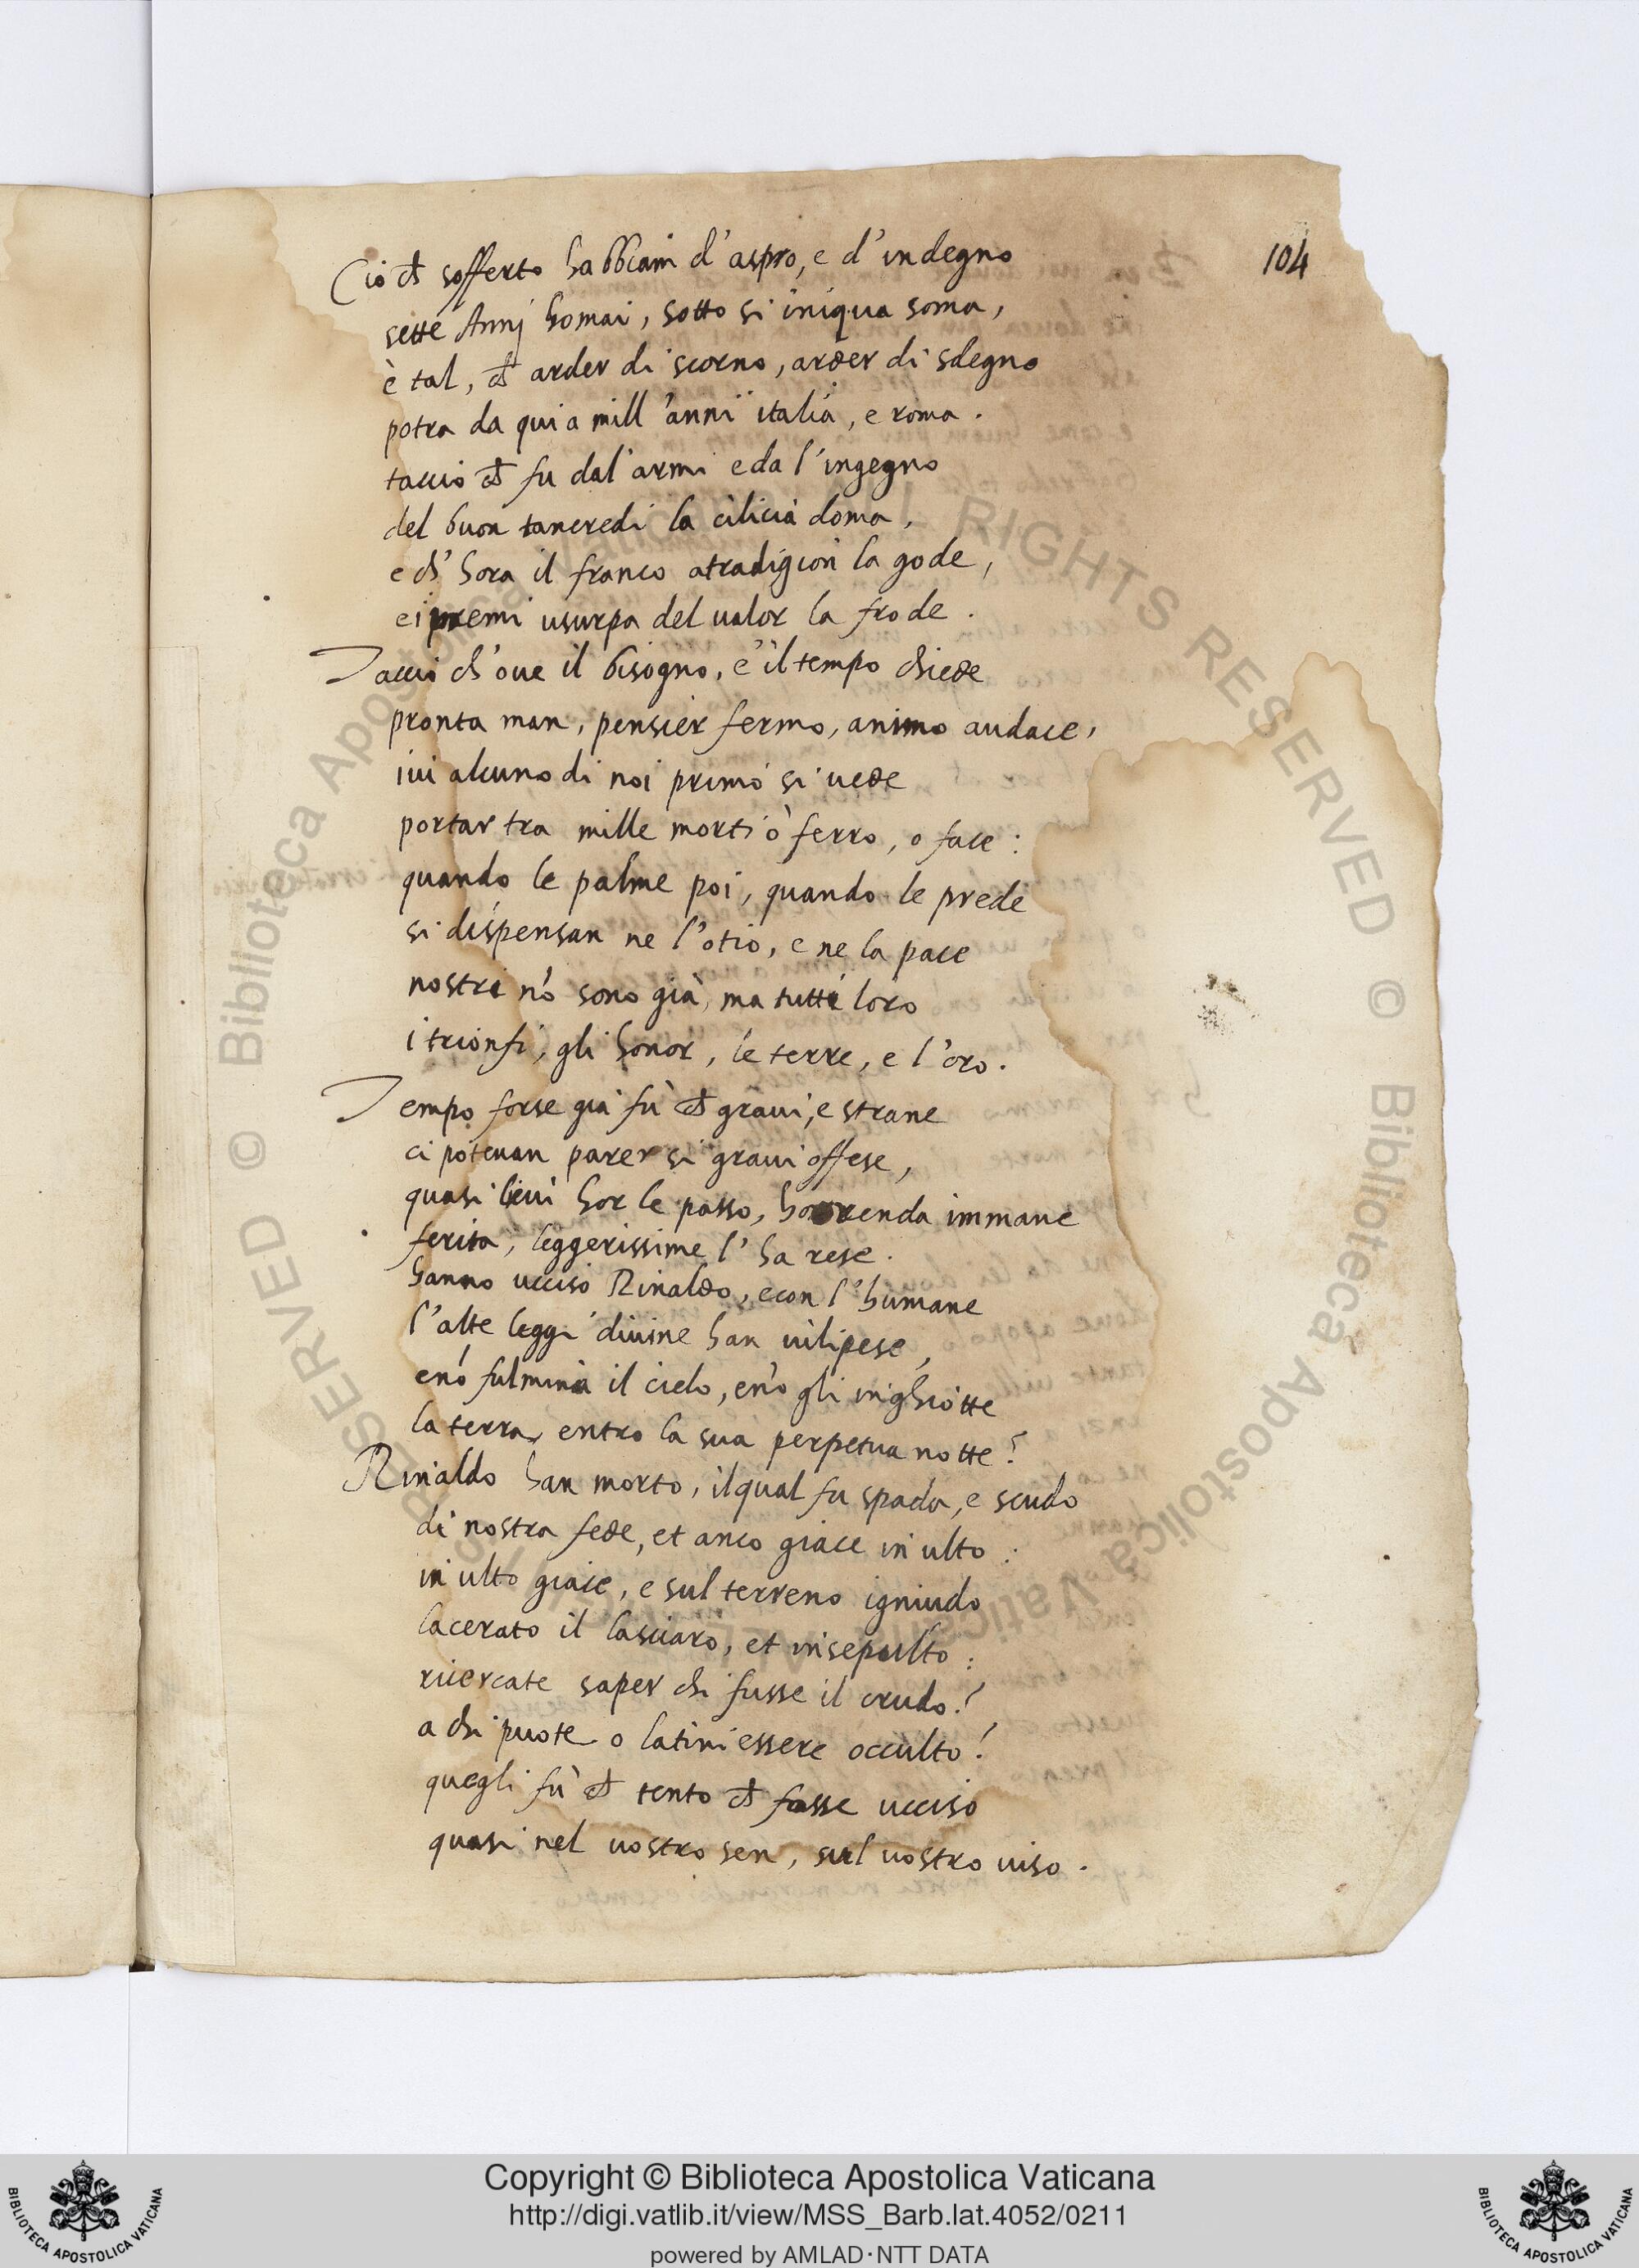 104
Ciò ch̃ sofferto habbiam d'aspro, e d'indegno
sette Annj homai, sotto si iniqua soma,
è tal, ch̃ arder di scorno, arder di sdegno
potra da qui a mill'anni italia, e roma.
taccio ch̃ fu dal'armi e da l'ingegno
del buon tancredi la cilicia doma,
e ch'hora il franco a tradigion la gode,
e i premi usurpa del ualor la frode.
Taccio ch'oue il bisogno, e il tempo chiede
pronta man, pensier fermo, animo audace,
iui alcuno di noi primo si uede
portar tra mille morti ò ferro, o face:
quando le palme poi, quando le prede
si dispensan ne l'otio, e ne la pace
nostri nõ sono già, ma tutti loro
i trionfi, gli honor, le terre, e l'oro.
Tempo forse già fù ch̃ graui, e strane
ci poteuan parer si graui offese,
quasi lieui hor le passo, horrenda immane
ferita, leggerissime l'ha rese.
hanno ucciso Rinaldo, e con l'humane
l'alte leggi diuine han uilipese,
e nõ fulmina il cielo, e nõ gli inghiotte
la terra, entro la sua perpetua notte?
Rinaldo han morto, ilqual fu spada, e scudo
di nostra fede, et anco giace in ulto:
in ulto giace, e sul terreno igniudo
lacerato il lasciaro, et insepulto:
ricercate saper chi fusse il crudo?
a chi puote o latini essere occulto?
quegli fù ch̃ tento ch̃ fosse ucciso
quasi nel uostro sen, sul uostro uiso.
Copyright © Biblioteca Apostolica Vaticana
http://digi.vatlib.it/view/MSS_Barb.lat.4052/0211
powered by AMLAD·NTT DATA
BIBLIOTECA APOSTOLICA VATICANA
BIBLIOTECA APOSTOLICA VATICANA